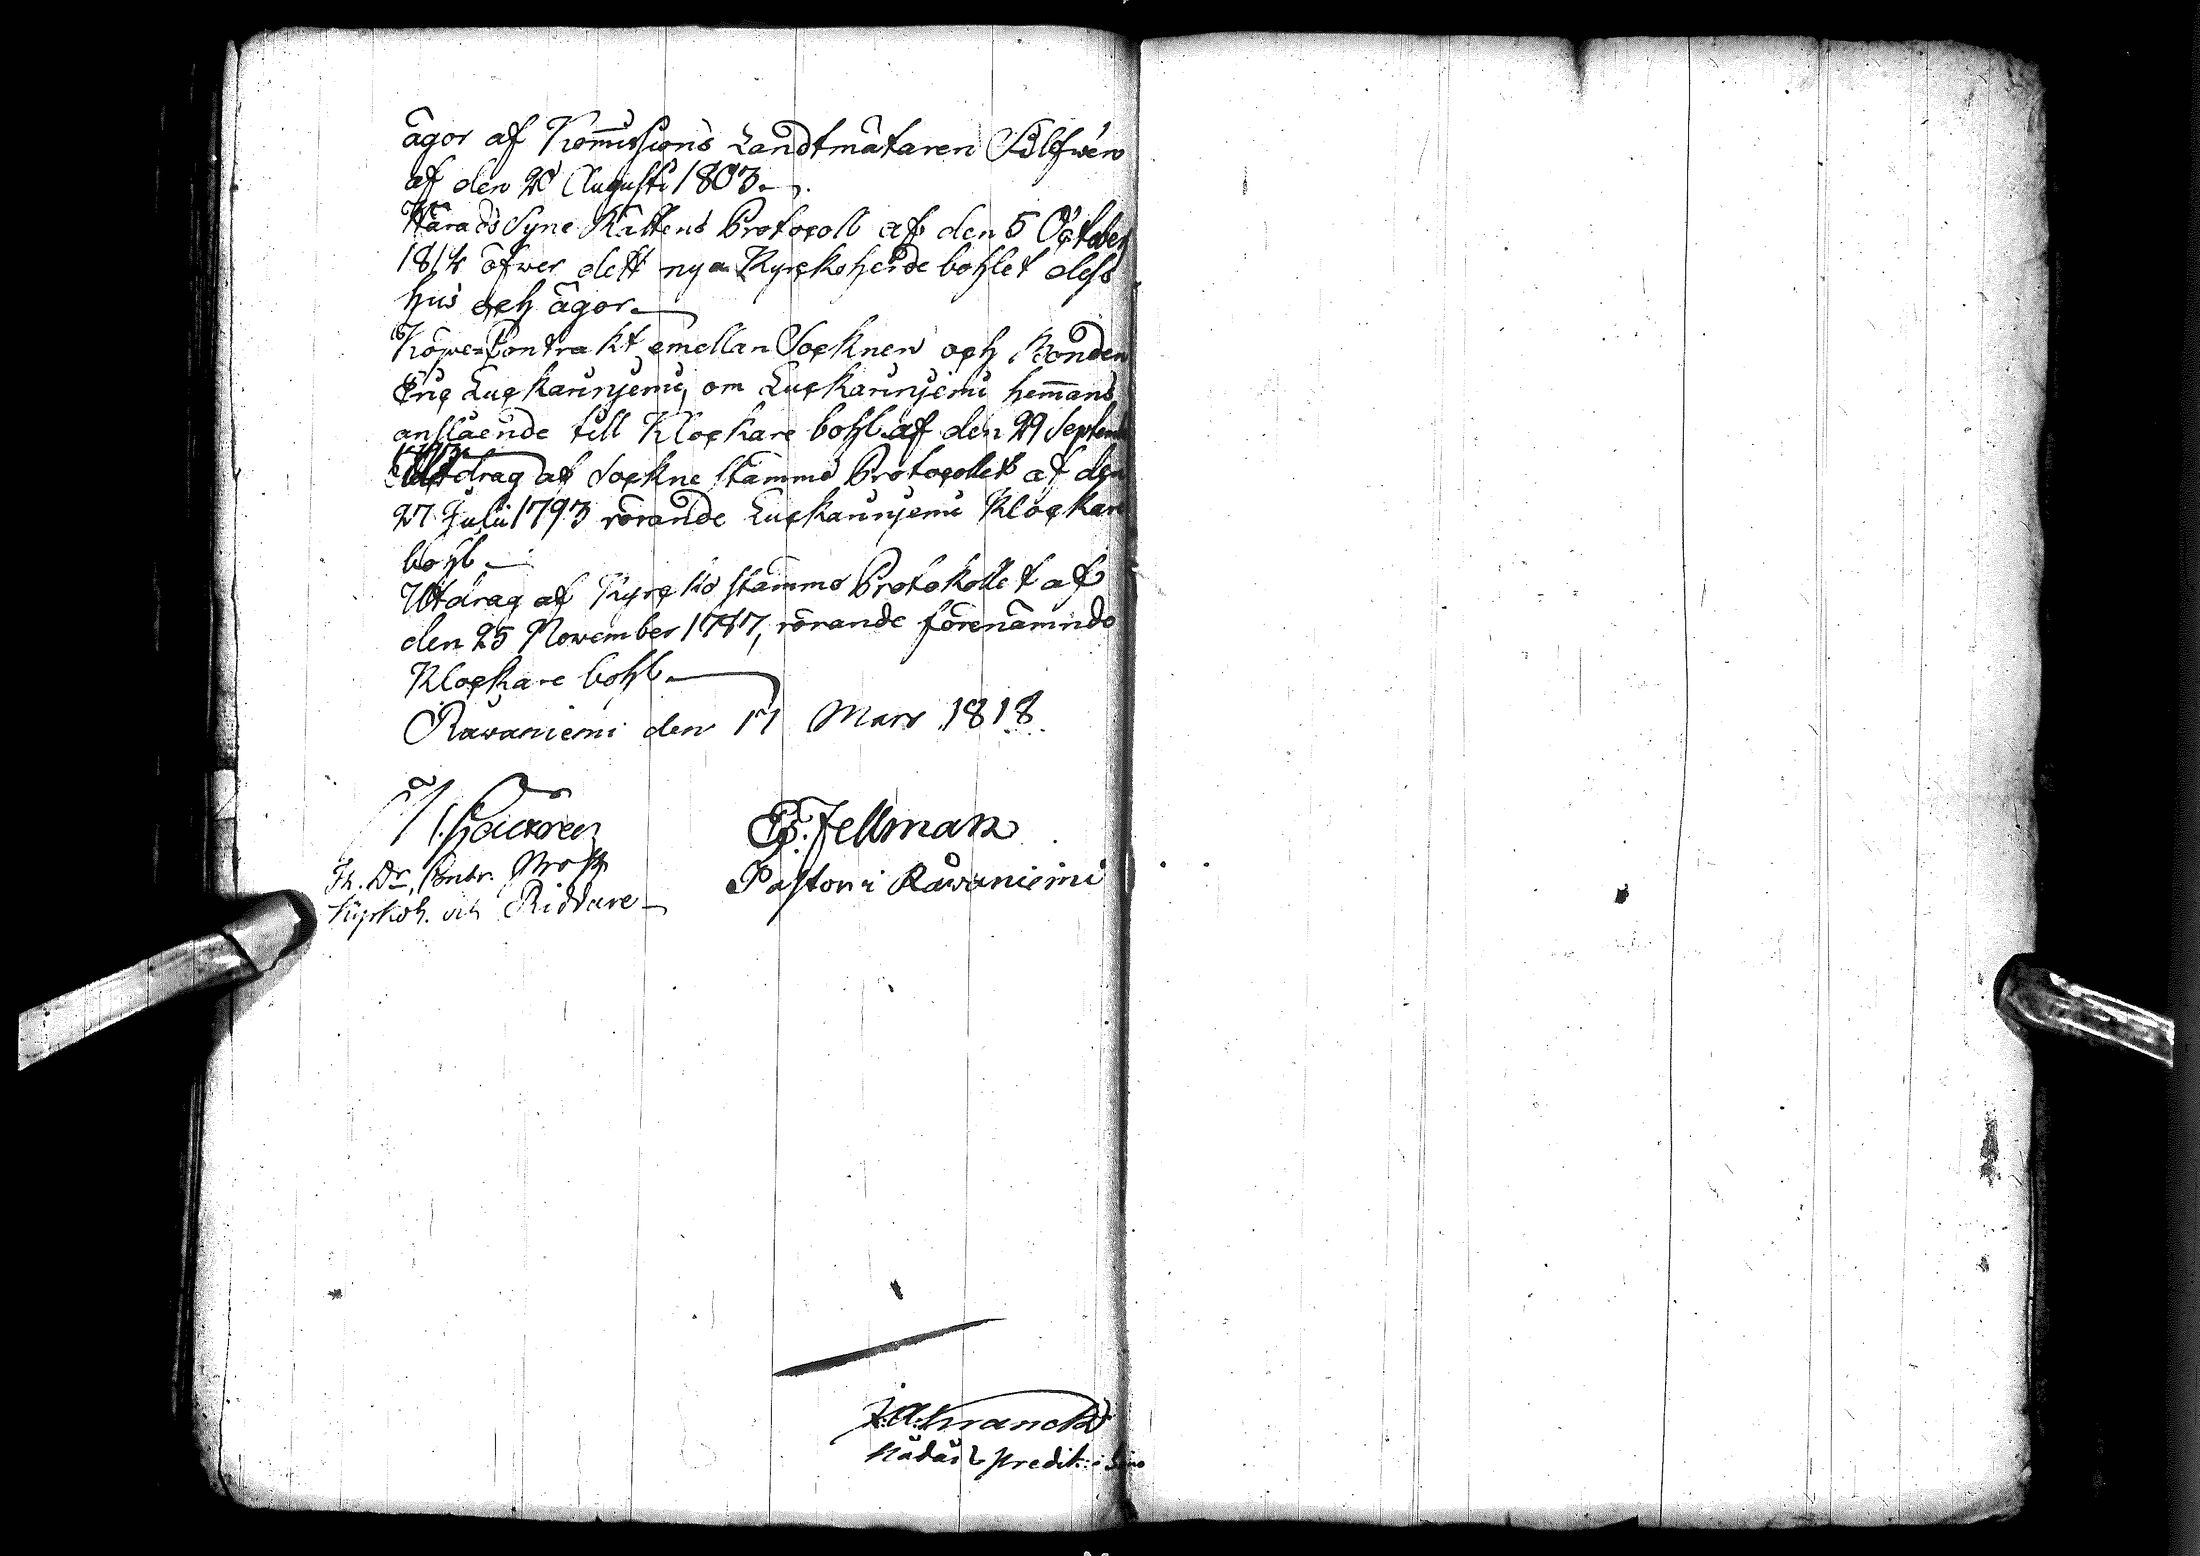 ägor af Kommissions Landtmätaren Sölfwén
af den 20 Augusti 1803.
Härads Syne Rättens Protocoll af den 5 October
1814 öfwer dett nya Kyrckoherde bohlet dess
hus och ägor.
Köpe-Contrakt emellan Socknen och Bonden
Eric Luckarinjemi, om Luckarinjemi hemmans
anslående till Klockare bohl af den 29 Septemb
Utdrag af Sockne stämmo Protocollet af den
27 Julii 1793 rörande Luckarinjemi Klockare
bohl.
Utdrag af Kyrcko stämmo Protokollet af
den 25 November 1787, rörande förenämndo
Klockare bohl.
Rawaniemi den 17 Mars 1818.
Th. Dr, Contr. Prost
Kyrkoh. och Riddare
E. Fellman
Pastor i Rawaniemi
J. A. Franck
Nådår predik: i